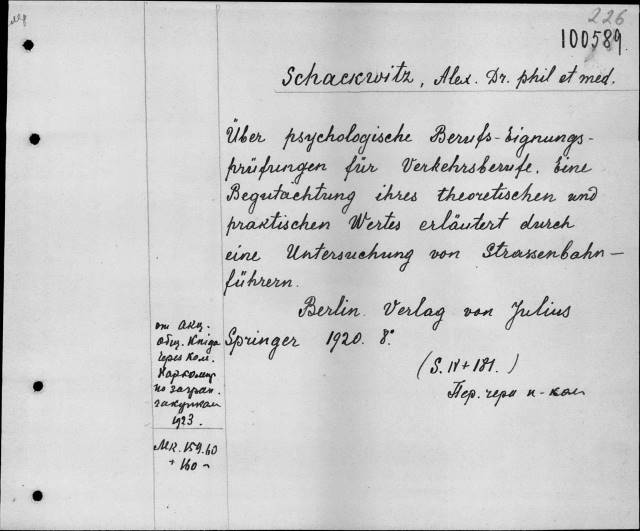 226
100589
Schackwitz, Alex. Dr. phil et med.
Über psychologische Berufs-Eignungs-
prüfungen für Verkehrsberufe. Eine
Begutachtung ihres theoretischen und
praktischen Wertes erläutert durch
eine Untersuchung von Strassenbahn-
führern.
Berlin. Verlag von Julius
Springer 1920. 8°.
(S. IV + 181.)
Пер. черн к-кол
от акц.
общ. Книга
через ком.
Наркомпр
по загран.
закупкам
1923.
Мк. 159.60
+ 160 -